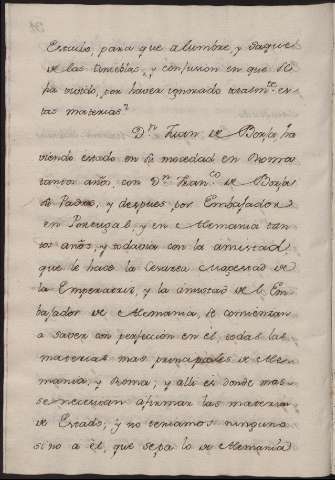 Estudio, para que alumbre, y saque
de las tinieblas, y confusion en que se
ha vivido, por haver ignorado totalm.te es-
tas materias.
D.n Juan de Borja, ha
viendo estado en su mocedad en Roma
tantos años, con D.n Fran.co de Borja
su Padre, y despues por Embajador
en Portugal, y en Alemania tan
tos años, y todavia con la amistad
que le hace la Cesarea Magestad de
la Emperatriz, y la amistad de el Em
bajador de Alemania, se comienzan
a saver con perfeccion en él, todas las
materias mas principales de Ale-
mania, y Roma, y alli es donde mas
se necesitan afirmar las materias
de Estado; y no teniamos ninguno
sino a él, que sepa lo de Alemania